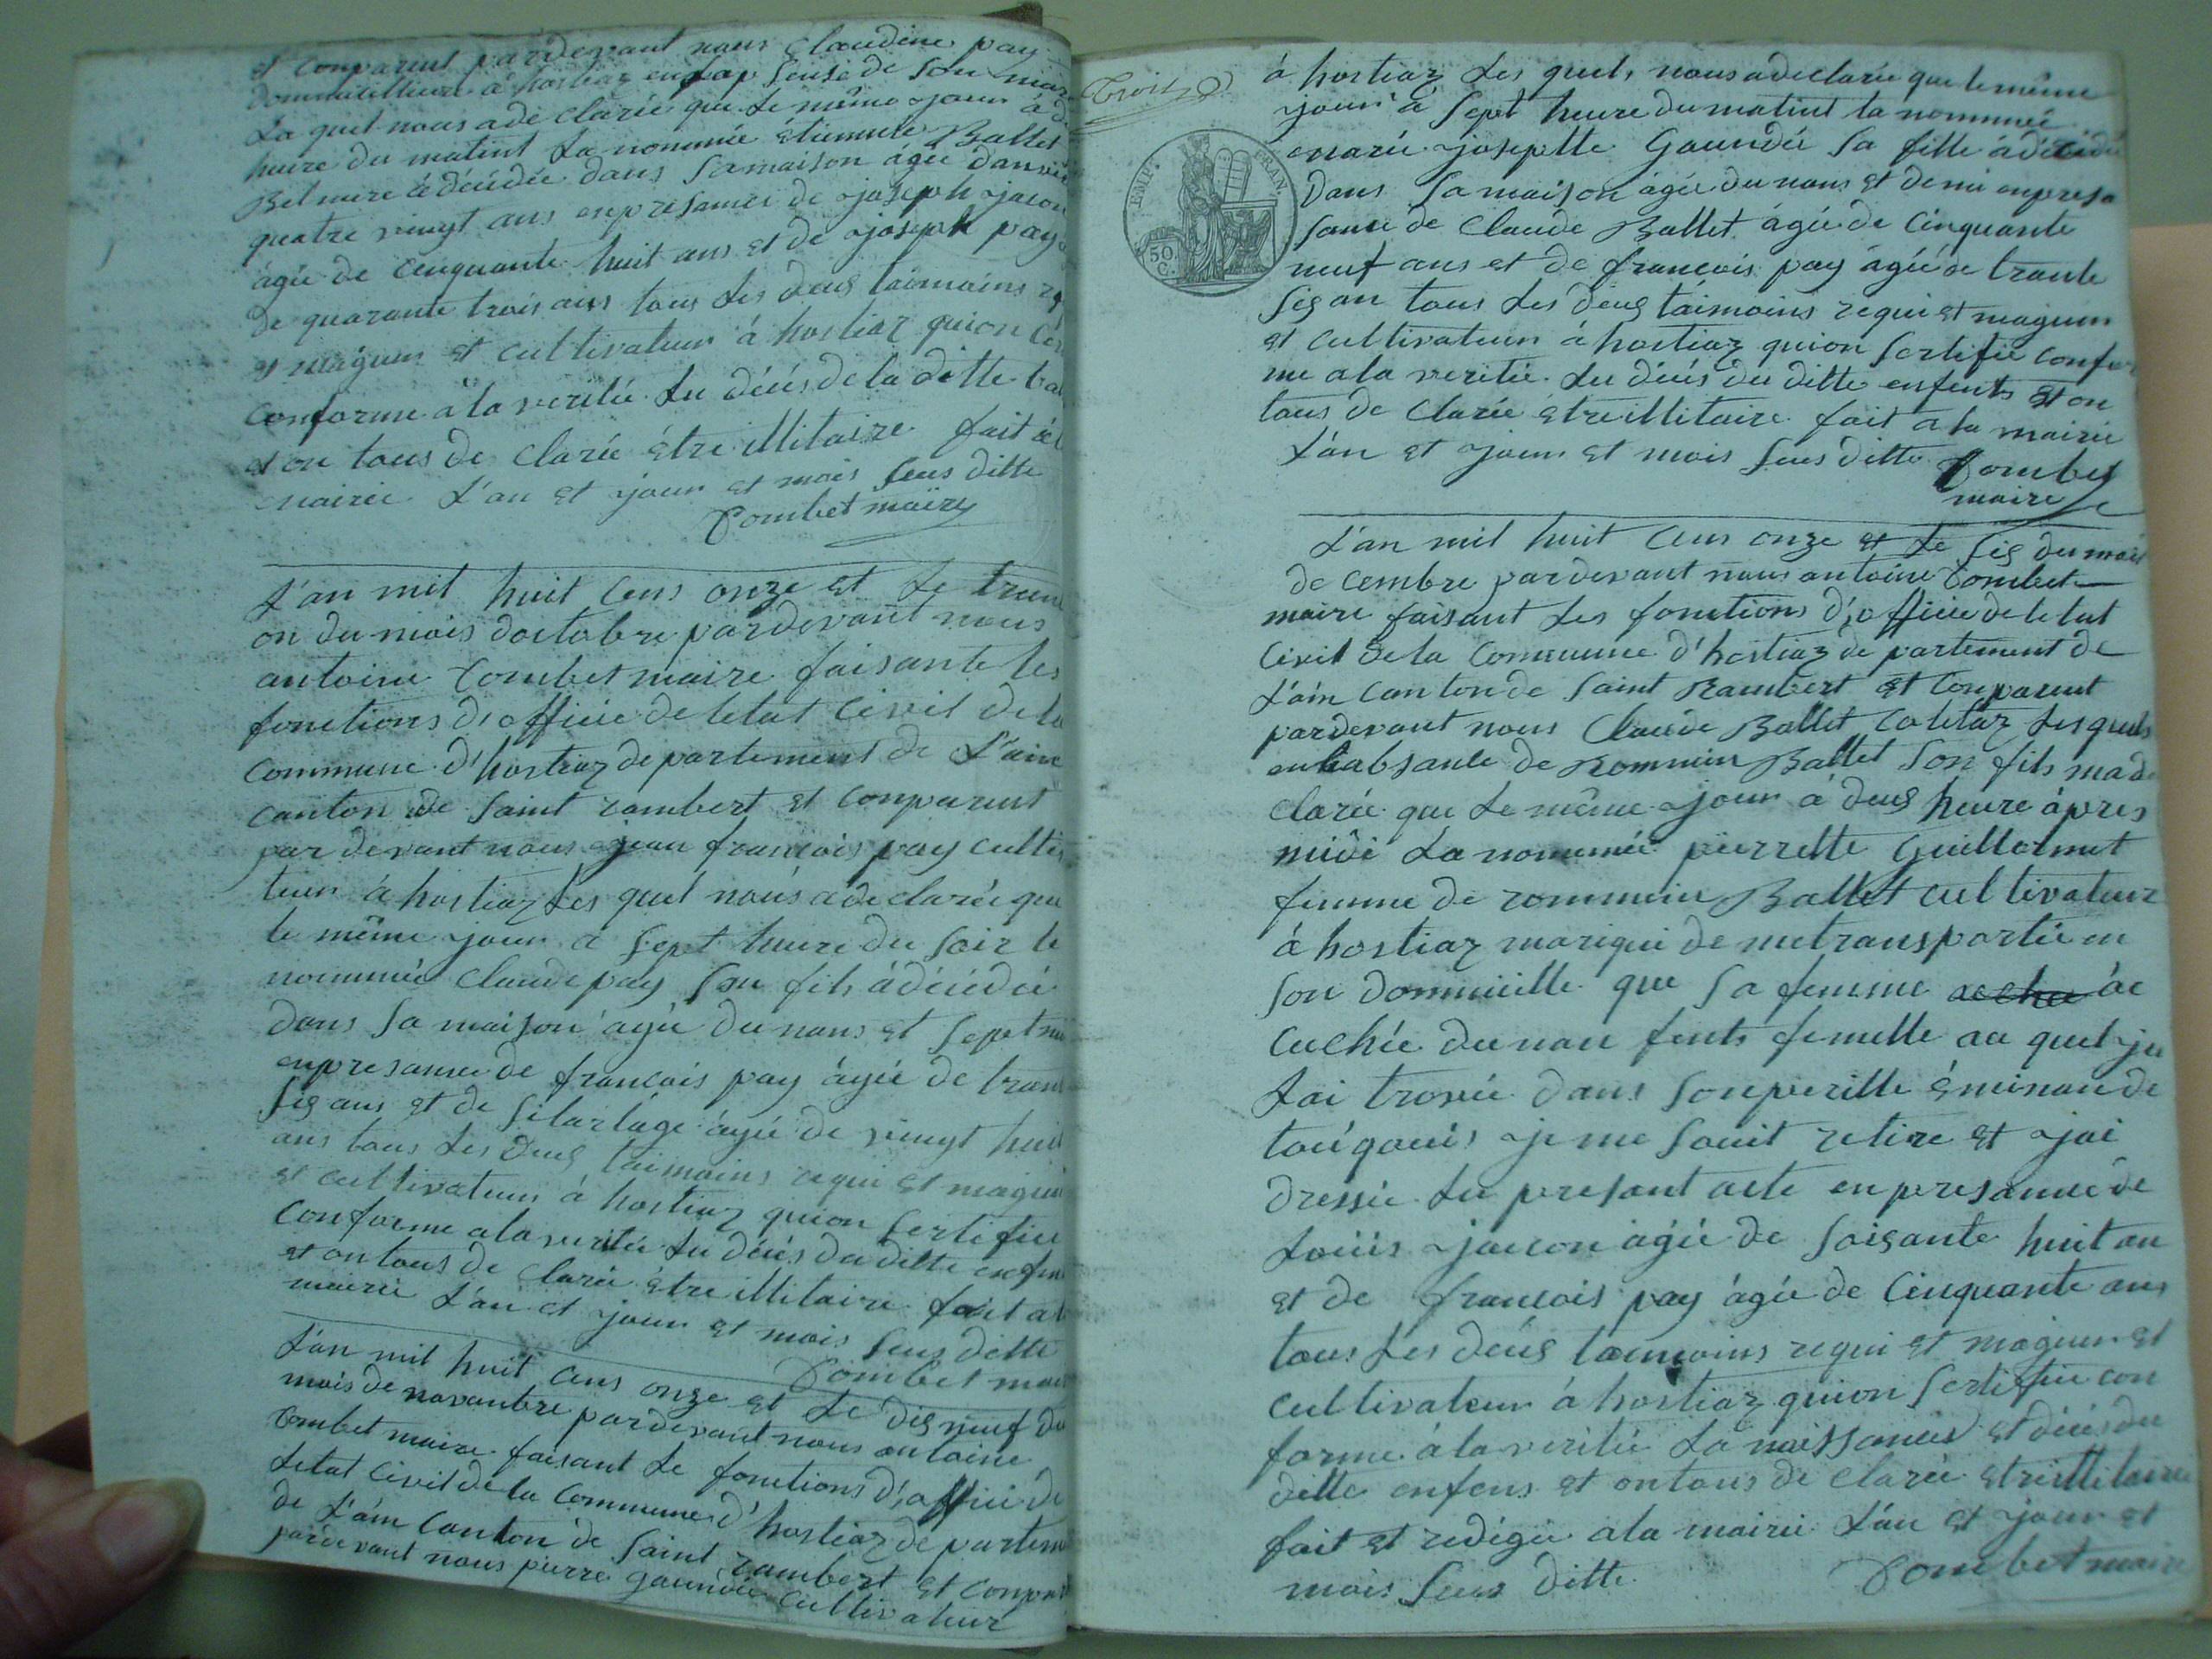 et Conparent pardevant nous Claudine pay
domicillieure à hostiaz en lap sense de son mar
La quel nous a de clarée que le même jour à d
heure du matint La nommée étiennete Ballet
Belmure à décédée dans sa maison âgée d'anvir
quatre vingt ans enpresamée de joseph jacon
âgée de cenquante huit ans et de joseph pay
de quarante trois ans tous les deus taimoins re
et magurs et cultivateur à hostiaz quion Cer
conforme à la verité du décés de la ditte bal
et on tous de clarée être illitaire fait à l
mairie L'an et jour et mois sus ditte
Tombet maire
L'an mil huit cens onze et le trente
on du mois doctobre pardevant nous
antoine Tombet maire faisante les
fonctions d'officie de letat civil de la
Commune d'hostiaz departement de L'ain
canton de saint rambert et conparent
par devant nous jean francois pay culti
teur à hostiaz Les quel nous a de clarée que
le même jour a sept heure du soir le
nommée Claude pay son fils à décédée
dans sa maison agée du nans et sept m
enpresamée de francois pay âgée de tran
sis ans et de agée de vingt huit
ans tous les deus taimoins requi et magur
et cultivateur à hostiaz quion sertifiée
Conforme a la veritée du décés du ditte enfen
et on tous de clarée être illitaire fait a l
mairie L'an et jour et mois sus ditte
Tombet mair
L'an mil huit cens onze et le dis neuf du
mois de novanbre pardevant nous antoine
Tombet maire faisant le fonctions d'officie de
letat civil de la Commune d'hostiaz de partem
de L'ain canton de saint rambert et conpar
pardevant nous pierre gaundée cultivateur
Trois
à hostiaz Les quels nous a declarée que le même
jour à sept heure du matint la nommée
marie josephte Gaundée sa fille à décédé
Dans sa maison âgée du nans et demi enpresa
samée de Claude Ballet âgée de Cinquante
neuf ans et de francois pay âgée de trante
sis an tous les deus taimoins requi et magurs
et cultivateur à hostiaz quion sertifié confor
me a la veritée du décés du ditte enfents et on
tous de clarée être illitaire fait a la mairie
L'an et jour et mois sus ditte Tombet
maire
EMP. FRAN.
50. C.
L'an mil huit cens onze et le sis du mois
de cembre pardevant nous antoine Tombet
maire faisant les fonctions d'officie de letat
civil de la Commune d'hostiaz de partement de
L'ain canton de saint Rambert et Conparent
pardevant nous Claude Ballet Calitaz Lesquels
en labsante de Rommin Ballet son fils ma de
clarée que le même jour à deus heure àpres
midi La nommée pierrette Guillermet
femme de rommin Ballet cultivateur
à hostiaz mariqui de metransportée en
son dommicille que sa femme acchu àc
cuchée du nan fents femelle au quel je
Lai trovée dans son perille éminan de
je me souit retire et jai
dressée du presant acte en presamée de
Loüis jacon âgée de soisante huit an
et de francois pay âgée de Cinquante ans
tous Les deus taemoins requi et magur et
cultivateur à hostiaz quion sertifiée con
forme à la veritée La naissance et décés du
ditte enfens et on tous de clarée etre illitaire
fait et redigée a la mairie L'an et jour et
mois sus ditte Tombet maire